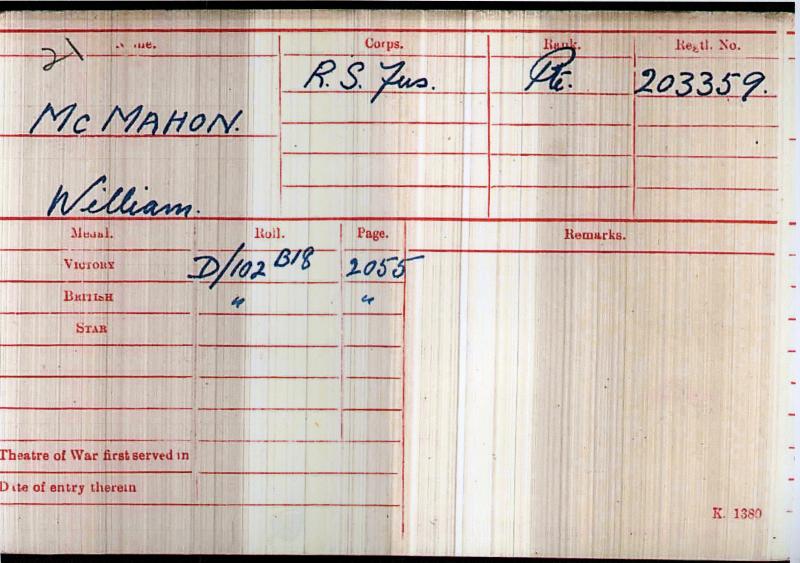 21 Name. Corps. Rank. Regtl. No.
R.S. Fus. Pte. 203359.
McMAHON.
William.
Medal. Roll. Page. Remarks.
VICTORY D/102 B18 2055
BRITISH " "
STAR
Theatre of War first served in
Date of entry therein
K. 1380